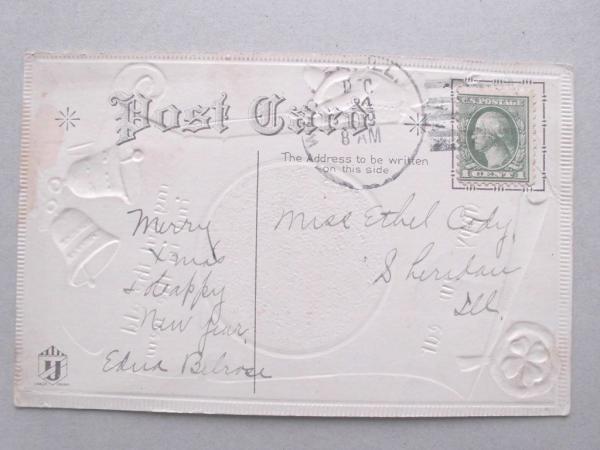 Post Card
DEC
8 AM
U.S. POSTAGE
The Address to be written
on this side
Merry
Xmas
& Happy
New Year
Edna Belrose
Miss Ethel Cody,
Sheridan
Ill.